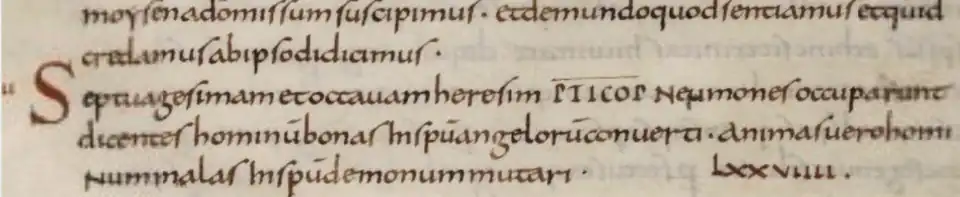 moysen ad omissum suscipimus · et de mundo quod sentiamus et quid
credamus ab ipso didicimus ·
Septuagesimam et octauam heresim PTICOP Neumones occuparunt
dicentes hominū bonas In spū angelorū conuerti · animas uero homi
Num malas In spū demonum mutari · LXXVIIII .